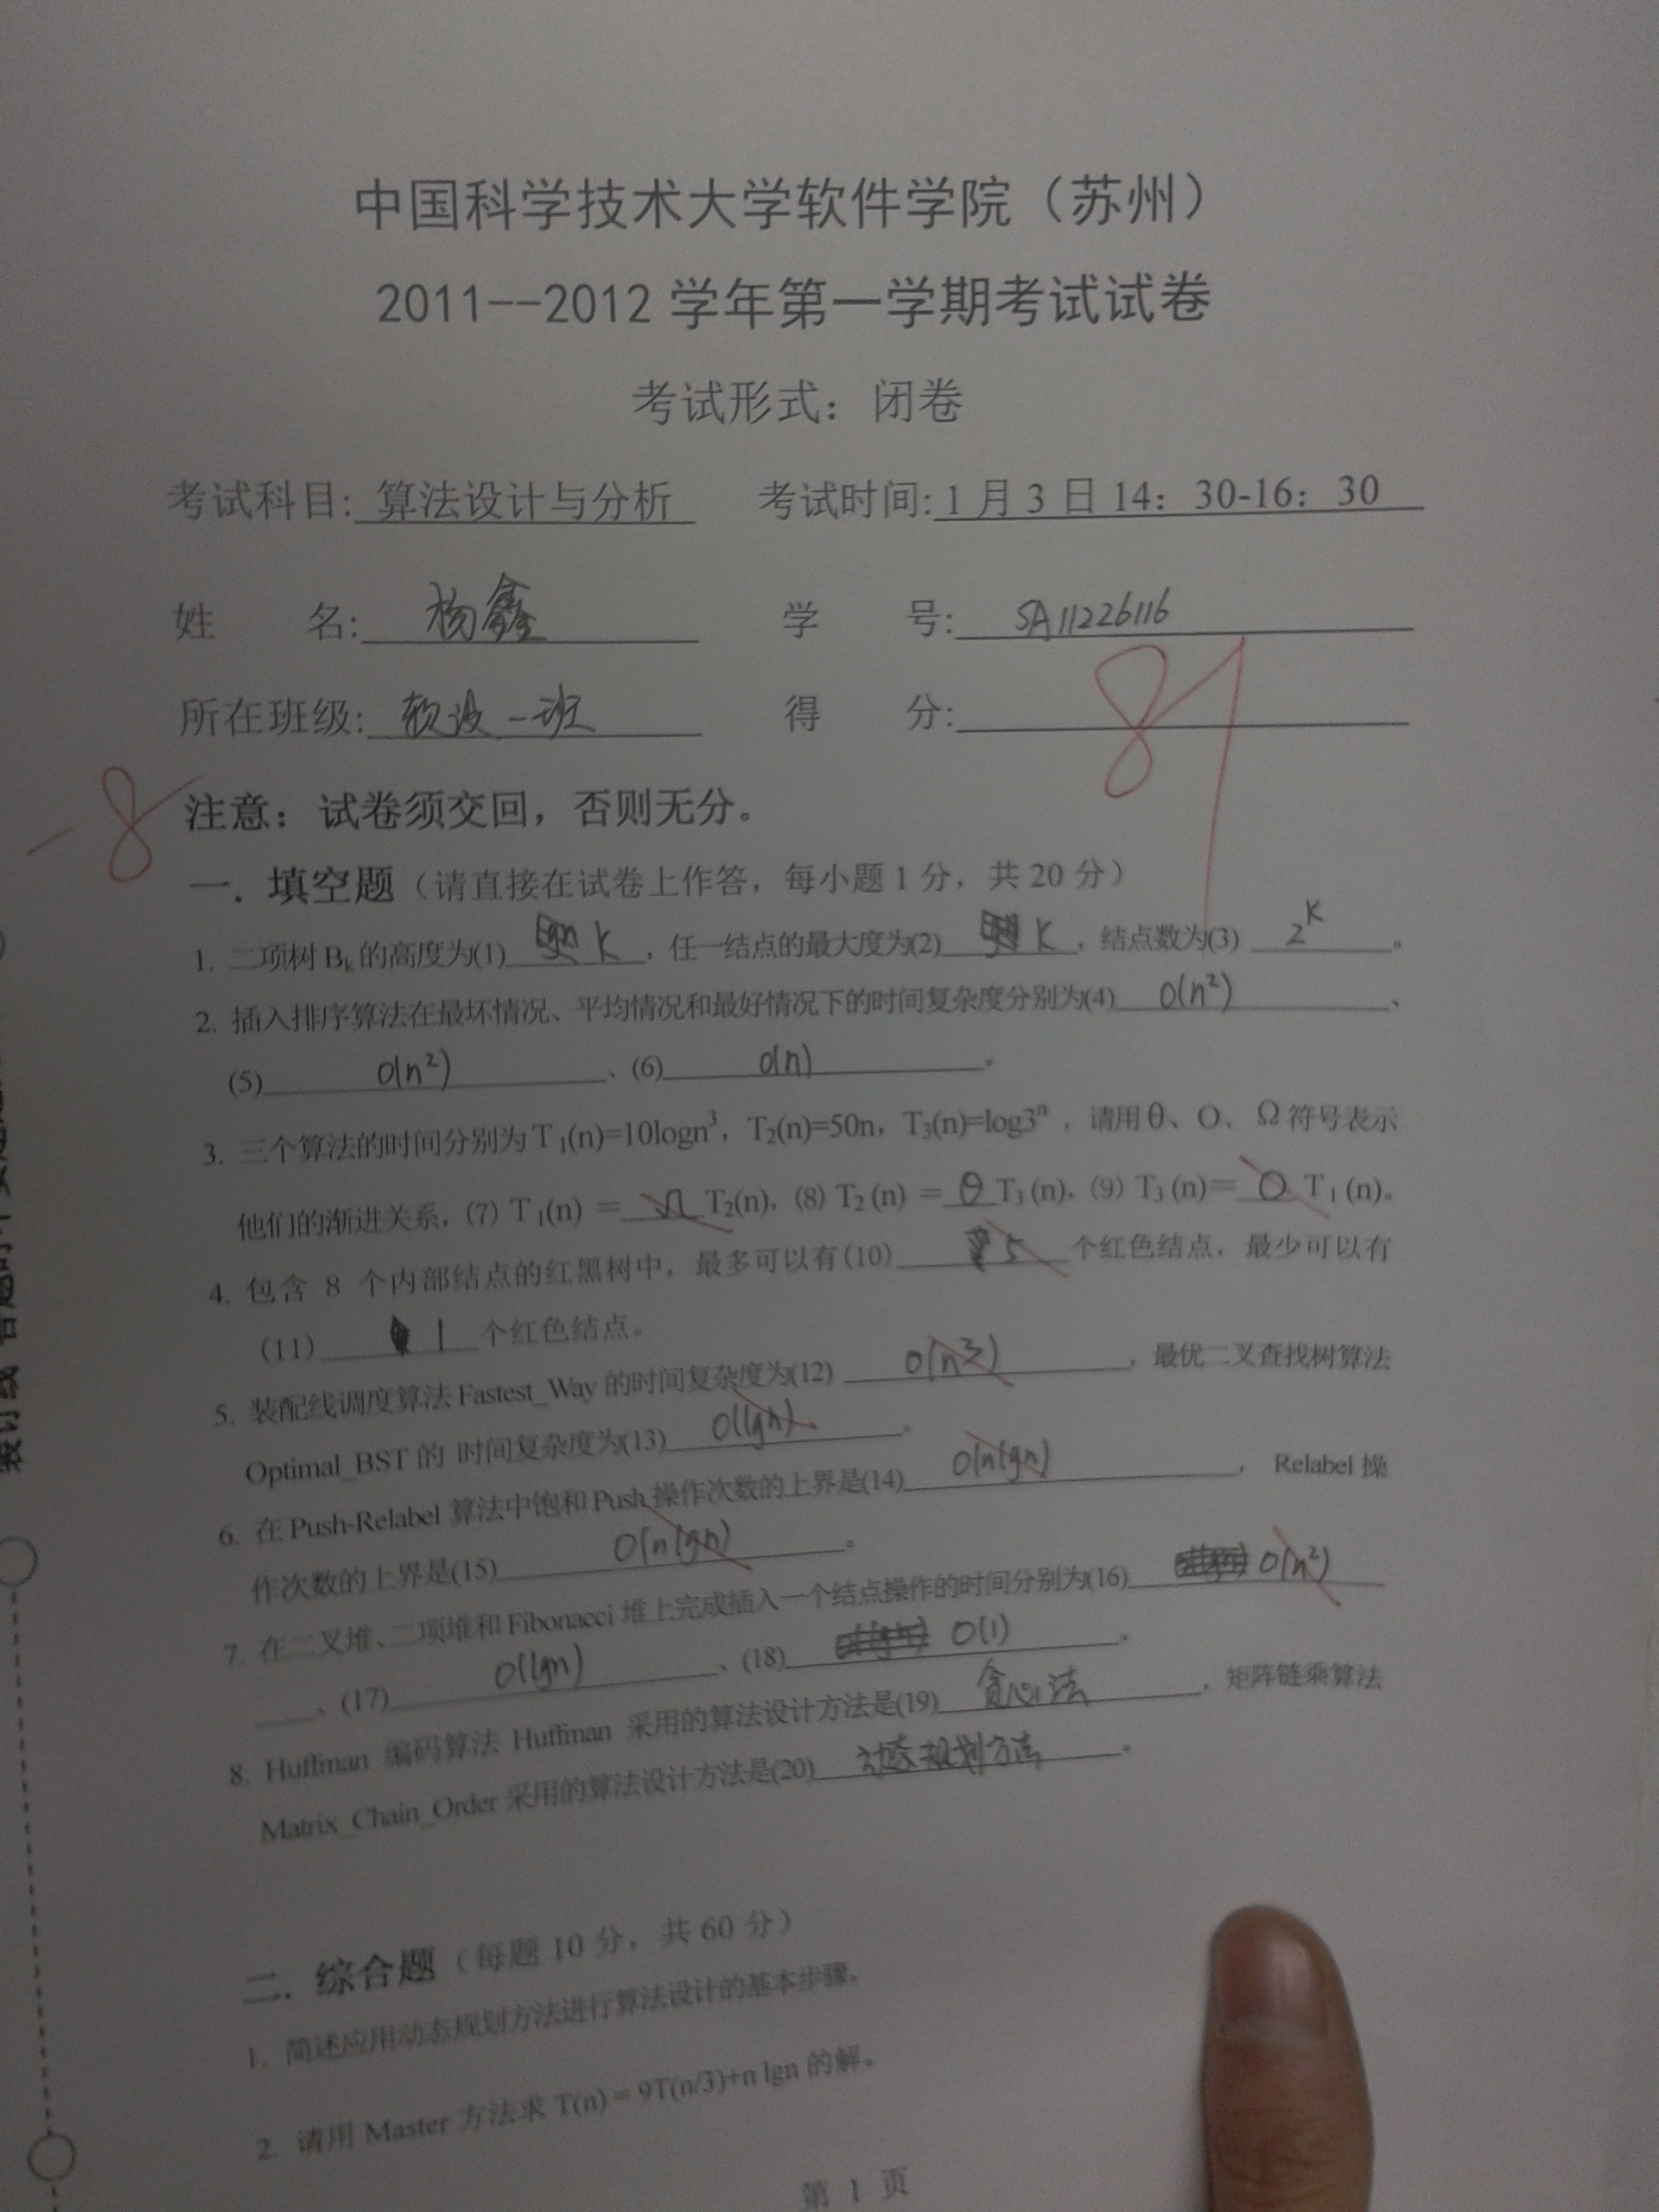 中国科学技术大学软件学院（苏州）
2011--2012 学年第一学期考试试卷
考试形式：闭卷
考试科目: 算法设计与分析 考试时间: 1 月 3 日 14：30-16：30
姓 名: 杨鑫 学 号: SA11226116
所在班级: 软设一班 得 分: 81
-8
注意：试卷须交回，否则无分。
一. 填空题（请直接在试卷上作答，每小题 1 分，共 20 分）
1. 二项树 Bk 的高度为(1) k ，任一结点的最大度为(2) k ，结点数为(3) 2^k 。
2. 插入排序算法在最坏情况、平均情况和最好情况下的时间复杂度分别为(4) O(n²) 、
(5) O(n²) 、(6) O(n) 。
3. 三个算法的时间分别为 T1(n)=10logn³，T2(n)=50n，T3(n)=log3ⁿ ，请用 θ、O、Ω 符号表示
他们的渐进关系，(7) T1(n) = Ω T2(n)，(8) T2 (n) = θ T3 (n)，(9) T3 (n)= O T1 (n)。
4. 包含 8 个内部结点的红黑树中，最多可以有(10) 5 个红色结点，最少可以有
(11) 1 个红色结点。
5. 装配线调度算法 Fastest_Way 的时间复杂度为(12) O(n³) ，最优二叉查找树算法
Optimal_BST 的 时间复杂度为(13) O(lgn) 。
6. 在 Push-Relabel 算法中饱和 Push 操作次数的上界是(14) O(nlgn) ， Relabel 操
作次数的上界是(15) O(nlgn) 。
7. 在二叉堆、二项堆和 Fibonacci 堆上完成插入一个结点操作的时间分别为(16) O(n²)
、(17) O(lgn) 、(18) O(1) 。
8. Huffman 编码算法 Huffman 采用的算法设计方法是(19) 贪心法 ，矩阵链乘算法
Matrix_Chain_Order 采用的算法设计方法是(20) 动态规划方法 。
二. 综合题（每题 10 分，共 60 分）
1. 简述应用动态规划方法进行算法设计的基本步骤。
2. 请用 Master 方法求 T(n) = 9T(n/3)+n lgn 的解。
第 1 页